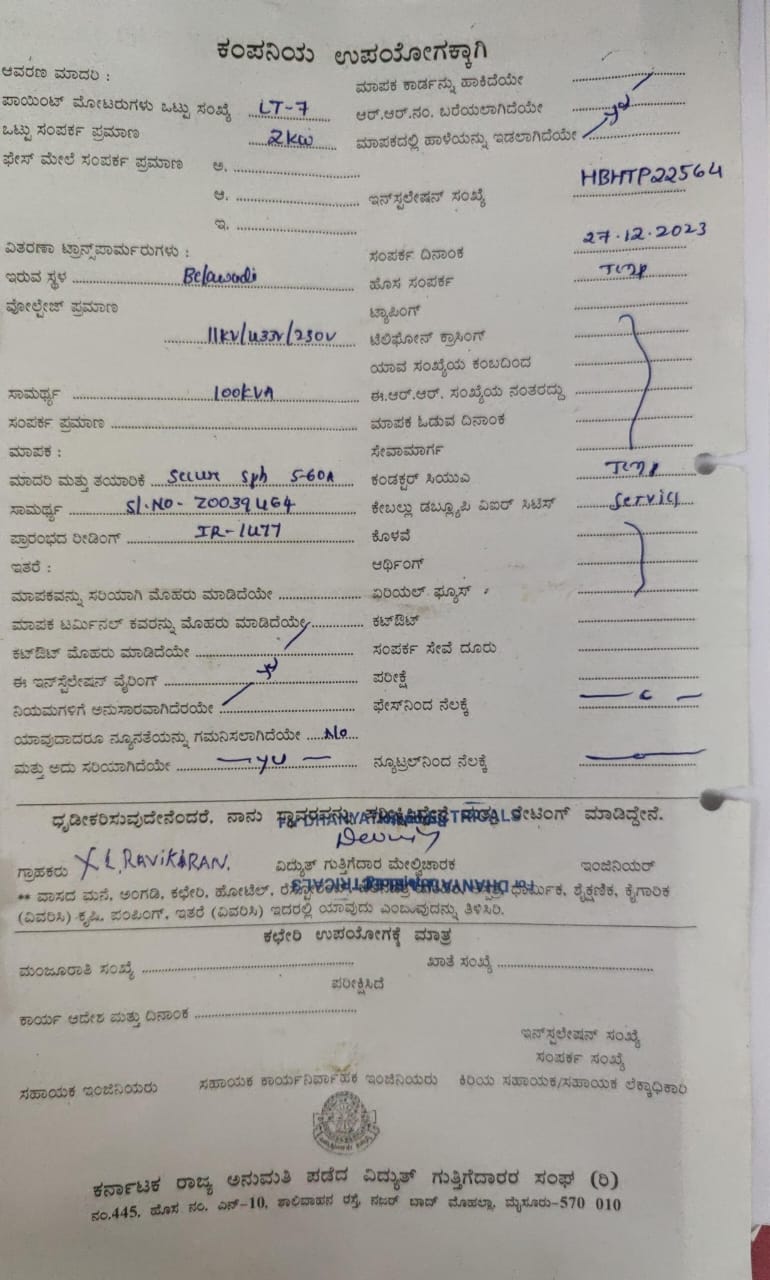 ಕಂಪನಿಯ ಉಪಯೋಗಕ್ಕಾಗಿ
ಆವರಣ ಮಾದರಿ :
ಮಾಪಕ ಕಾರ್ಡನ್ನು ಹಾಕಿದೆಯೇ
ಪಾಯಿಂಟ್ ಮೋಟರುಗಳು ಒಟ್ಟು ಸಂಖ್ಯೆ LT-7
ಆರ್.ಆರ್.ನಂ. ಬರೆಯಲಾಗಿದೆಯೇ
ಒಟ್ಟು ಸಂಪರ್ಕ ಪ್ರಮಾಣ 2kw
ಮಾಪಕದಲ್ಲಿ ಹಾಳೆಯನ್ನು ಇಡಲಾಗಿದೆಯೇ
ಫೇಸ್ ಮೇಲೆ ಸಂಪರ್ಕ ಪ್ರಮಾಣ ಅ.
ಆ. ಇನ್‌ಸ್ಟಲೇಷನ್ ಸಂಖ್ಯೆ HBHTP22564
ಇ.
ವಿತರಣಾ ಟ್ರಾನ್ಸ್‌ಪಾರ್ಮರುಗಳು :
ಸಂಪರ್ಕ ದಿನಾಂಕ 27.12.2023
ಇರುವ ಸ್ಥಳ Belawadi
ಹೊಸ ಸಂಪರ್ಕ Temp
ವೋಲ್ಟೇಜ್ ಪ್ರಮಾಣ
ಟ್ಯಾಪಿಂಗ್
11KV/433V/230V
ಟೆಲಿಫೋನ್ ಕ್ರಾಸಿಂಗ್
ಯಾವ ಸಂಖ್ಯೆಯ ಕಂಬದಿಂದ
ಸಾಮರ್ಥ್ಯ 100KVA
ಈ.ಆರ್.ಆರ್. ಸಂಖ್ಯೆಯ ನಂತರದ್ದು
ಸಂಪರ್ಕ ಪ್ರಮಾಣ
ಮಾಪಕ ಓಡುವ ದಿನಾಂಕ
ಮಾಪಕ :
ಸೇವಾಮಾರ್ಗ
ಮಾದರಿ ಮತ್ತು ತಯಾರಿಕೆ Secure Sph 5-60A
ಕಂಡಕ್ಟರ್ ಸಿಯುಎ Temp
ಸಾಮರ್ಥ್ಯ Sl.NO- 20039464
ಕೇಬಲ್ಲು ಡಬ್ಲ್ಯೂಪಿ ವಿಐರ್ ಸಿಟಿಸ್ Service
ಪ್ರಾರಂಭದ ರೀಡಿಂಗ್ IR-1477
ಕೊಳವೆ
ಇತರೆ :
ಆರ್ಥಿಂಗ್
ಮಾಪಕವನ್ನು ಸರಿಯಾಗಿ ಮೊಹರು ಮಾಡಿದೆಯೇ
ಏರಿಯಲ್ ಫ್ಯೂಸ್
ಮಾಪಕ ಟರ್ಮಿನಲ್ ಕವರನ್ನು ಮೊಹರು ಮಾಡಿದೆಯೇ
ಕಟ್‌ಔಟ್
ಕಟ್‌ಔಟ್ ಮೊಹರು ಮಾಡಿದೆಯೇ
ಸಂಪರ್ಕ ಸೇವೆ ದೂರು
ಈ ಇನ್‌ಸ್ಟೆಲೇಷನ್ ವೈರಿಂಗ್
ಪರೀಕ್ಷೆ
ನಿಯಮಗಳಿಗೆ ಅನುಸಾರವಾಗಿದೆರಯೇ
ಫೇಸ್‌ನಿಂದ ನೆಲಕ್ಕೆ
ಯಾವುದಾದರೂ ನ್ಯೂನತೆಯನ್ನು ಗಮನಿಸಲಾಗಿದೆಯೇ No
ಮತ್ತು ಅದು ಸರಿಯಾಗಿದೆಯೇ
ನ್ಯೂಟ್ರಲ್‌ನಿಂದ ನೆಲಕ್ಕೆ
ಧೃಡೀಕರಿಸುವುದೇನೆಂದರೆ, ನಾನು ಸ್ಥಾವರವನ್ನು ಪರೀಕ್ಷಿಸಿದ್ದೇನೆ ಮತ್ತು ರೇಟಿಂಗ್ ಮಾಡಿದ್ದೇನೆ.
For DHANYATA ELECTRICALS
ಗ್ರಾಹಕರು X L. RAVIKIRAN.
ವಿದ್ಯುತ್ ಗುತ್ತಿಗೆದಾರ ಮೇಲ್ವಿಚಾರಕ
ಇಂಜಿನಿಯರ್
For DHANYATA ELECTRICALS
** ವಾಸದ ಮನೆ, ಅಂಗಡಿ, ಕಛೇರಿ, ಹೋಟೆಲ್, ಧಾರ್ಮಿಕ, ಶೈಕ್ಷಣಿಕ, ಕೈಗಾರಿಕೆ
(ವಿವರಿಸಿ) ಕೃಷಿ, ಪಂಪಿಂಗ್, ಇತರೆ (ವಿವರಿಸಿ) ಇದರಲ್ಲಿ ಯಾವುದು ಎಂಬುವುದನ್ನು ತಿಳಿಸಿರಿ.
ಕಛೇರಿ ಉಪಯೋಗಕ್ಕೆ ಮಾತ್ರ
ಮಂಜೂರಾತಿ ಸಂಖ್ಯೆ
ಖಾತೆ ಸಂಖ್ಯೆ
ಪರೀಕ್ಷಿಸಿದೆ
ಕಾರ್ಯ ಆದೇಶ ಮತ್ತು ದಿನಾಂಕ
ಇನ್‌ಸ್ಟಲೇಷನ್ ಸಂಖ್ಯೆ
ಸಂಪರ್ಕ ಸಂಖ್ಯೆ
ಸಹಾಯಕ ಇಂಜಿನಿಯರು
ಸಹಾಯಕ ಕಾರ್ಯನಿರ್ವಾಹಕ ಇಂಜಿನಿಯರು
ಕಿರಿಯ ಸಹಾಯಕ/ಸಹಾಯಕ ಲೆಕ್ಕಾಧಿಕಾರಿ
ಕರ್ನಾಟಕ ರಾಜ್ಯ ಅನುಮತಿ ಪಡೆದ ವಿದ್ಯುತ್ ಗುತ್ತಿಗೆದಾರರ ಸಂಘ (ರಿ)
ನಂ.445, ಹೊಸ ನಂ. ಎನ್-10, ಶಾಲಿವಾಹನ ರಸ್ತೆ, ನಜರ್ ಬಾದ್ ಮೊಹಲ್ಲಾ, ಮೈಸೂರು-570 010